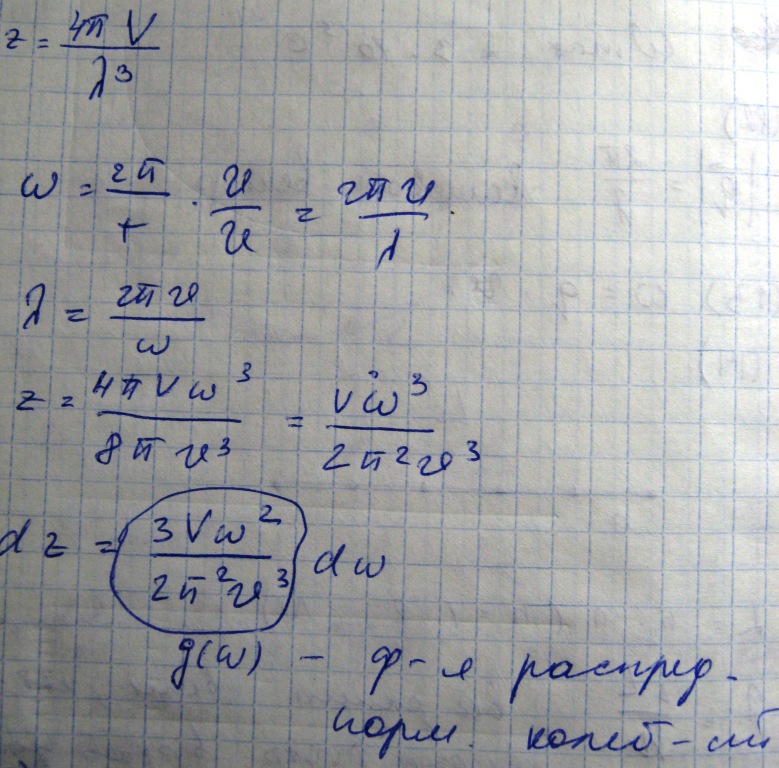 z = 4π V / λ³
ω = 2π / t · υ / υ = 2π υ / λ
λ = 2π υ / ω
z = 4π V ω³ / 8π υ³ = V ω³ / 2π² υ³
dz = 3 V ω² / 2π² υ³ dω
g(ω) – ф-я распред.
норм. колеб-ий